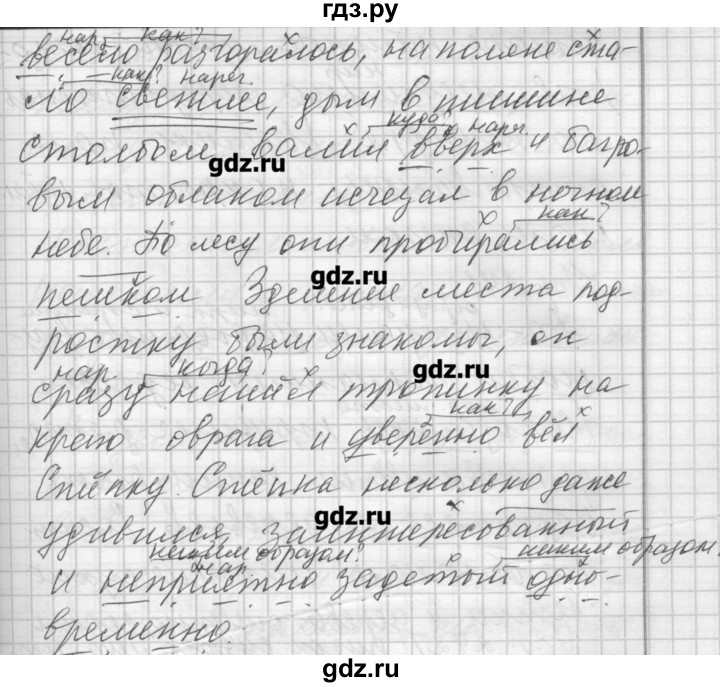 гдз.ру
нар. как?
весело разгоралось, на поляне ста-
как? нареч.
ло светлее, дым в тишине
куда? нареч.
столбом валил вверх и багро-
gdz.ru
вым облаком исчезал в ночном
как?
небе. По лесу они пробирались
gdz.ru
пешком. Здешние места под-
ростку были знакомы, он
нар. когда?
gdz.ru
сразу нашёл тропинку на
как?
краю оврага и уверенно вёл
Стёпку. Стёпка несколько даже
gdz.ru
удивился, заинтересованный
каким образом? каким образом?
нар.
и неприятно задетый одно-
временно.
gdz.ru